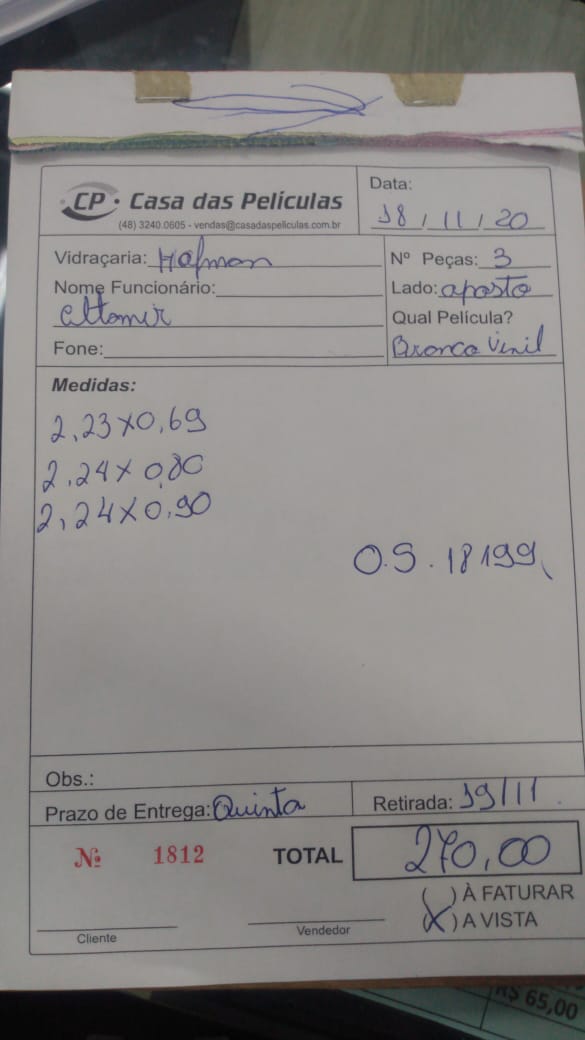 CP · Casa das Películas
(48) 3240.0605 - vendas@casadaspeliculas.com.br
Data:
18 / 11 / 20
Vidraçaria: Hofman
Nome Funcionário:
Fone:
Nº Peças: 3
Lado: oposto
Qual Película?
Branco Vinil
Medidas:
2,23x0,69
2,24x0,80
2,24x0,90
O.S. 18199
Obs.:
Prazo de Entrega: Quinta
Retirada: 19/11
Nº 1812
TOTAL 270,00
( ) À FATURAR
(X) A VISTA
Cliente
Vendedor
R$ 65,00